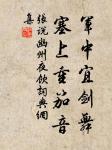 軍中宜劍舞
塞上重笳音
張說幽州夜飲詞典網
真